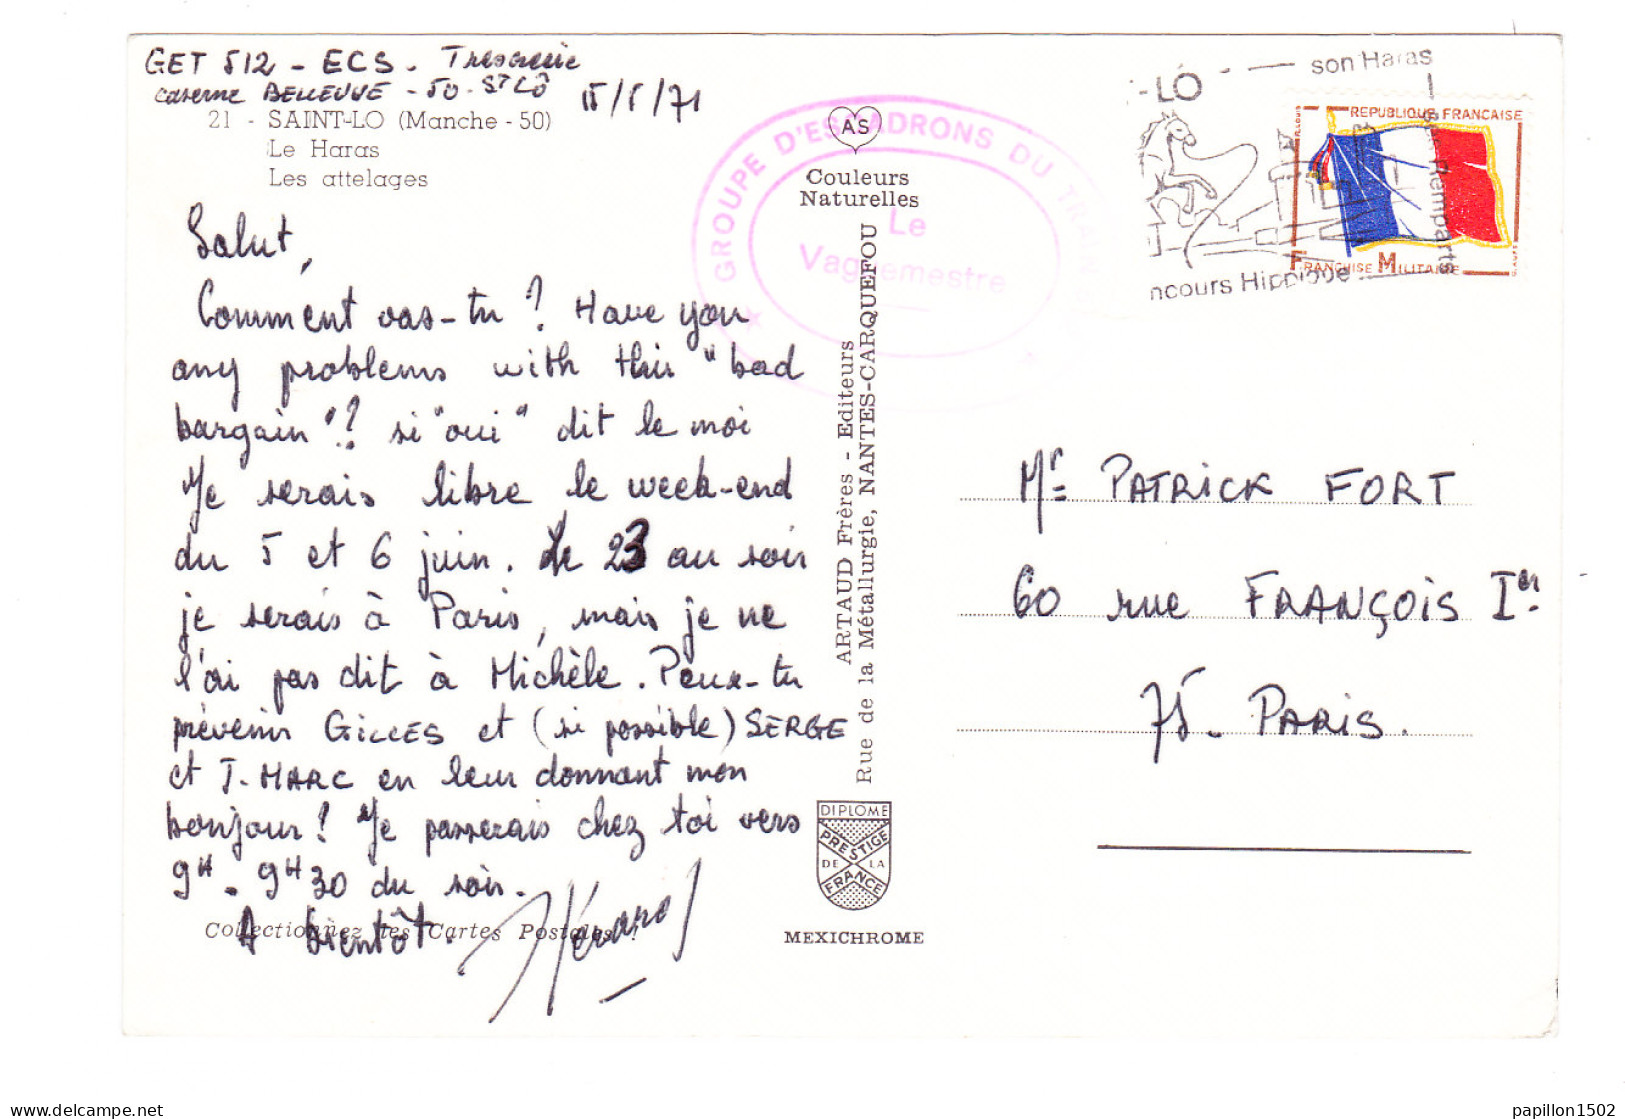 GET 512 - ECS - Tresorerie
caserne BELLEVUE - 50 - St LÔ 15/5/71
21 - SAINT-LO (Manche - 50)
Le Haras
Les attelages
Salut,
Comment vas-tu ? Have you
any problems with this "bad
bargain"? si "oui" dit le moi
Je serais libre le week-end
du 5 et 6 juin. Le 23 au soir
je serais à Paris, mais je ne
l'ai pas dit à Michèle. Peux-tu
prévenir GILLES et (si possible) SERGE
et J. MARC en leur donnant mon
bonjour ! Je passerais chez toi vers
9H - 9H30 du soir.
A bientôt.
Collectionnez les Cartes Postales !
AS
Couleurs
Naturelles
GROUPE D'ESCADRONS DU TRAIN
Le
Vaguemestre
ARTAUD Frères - Editeurs
Rue de la Métallurgie, NANTES-CARQUEFOU
DIPLOME
PRESTIGE
DE LA
FRANCE
MEXICHROME
-LÔ
son Haras
ses Remparts
ncours Hippique
REPUBLIQUE FRANCAISE
FRANCHISE MILITAIRE
Mr PATRICK FORT
60 rue FRANÇOIS Ier
75 - PARIS.
papillon1502